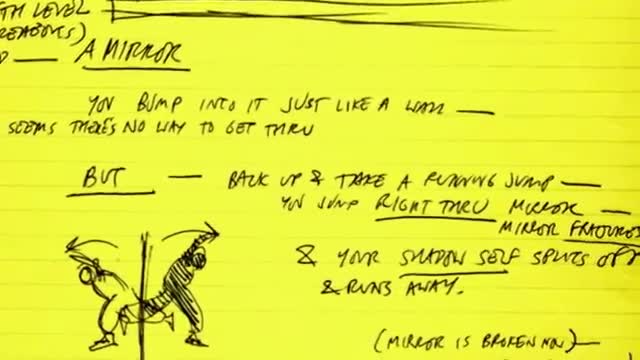 TH LEVEL
REASONS)
— A MIRROR
YOU BUMP INTO IT JUST LIKE A WALL —
SEEMS THERE'S NO WAY TO GET THRU
BUT — BACK UP & TAKE A RUNNING JUMP —
YOU JUMP RIGHT THRU MIRROR —
MIRROR FRACTURES
& YOUR SHADOW SELF SPLITS OFF
& RUNS AWAY.
(MIRROR IS BROKEN NOW) —